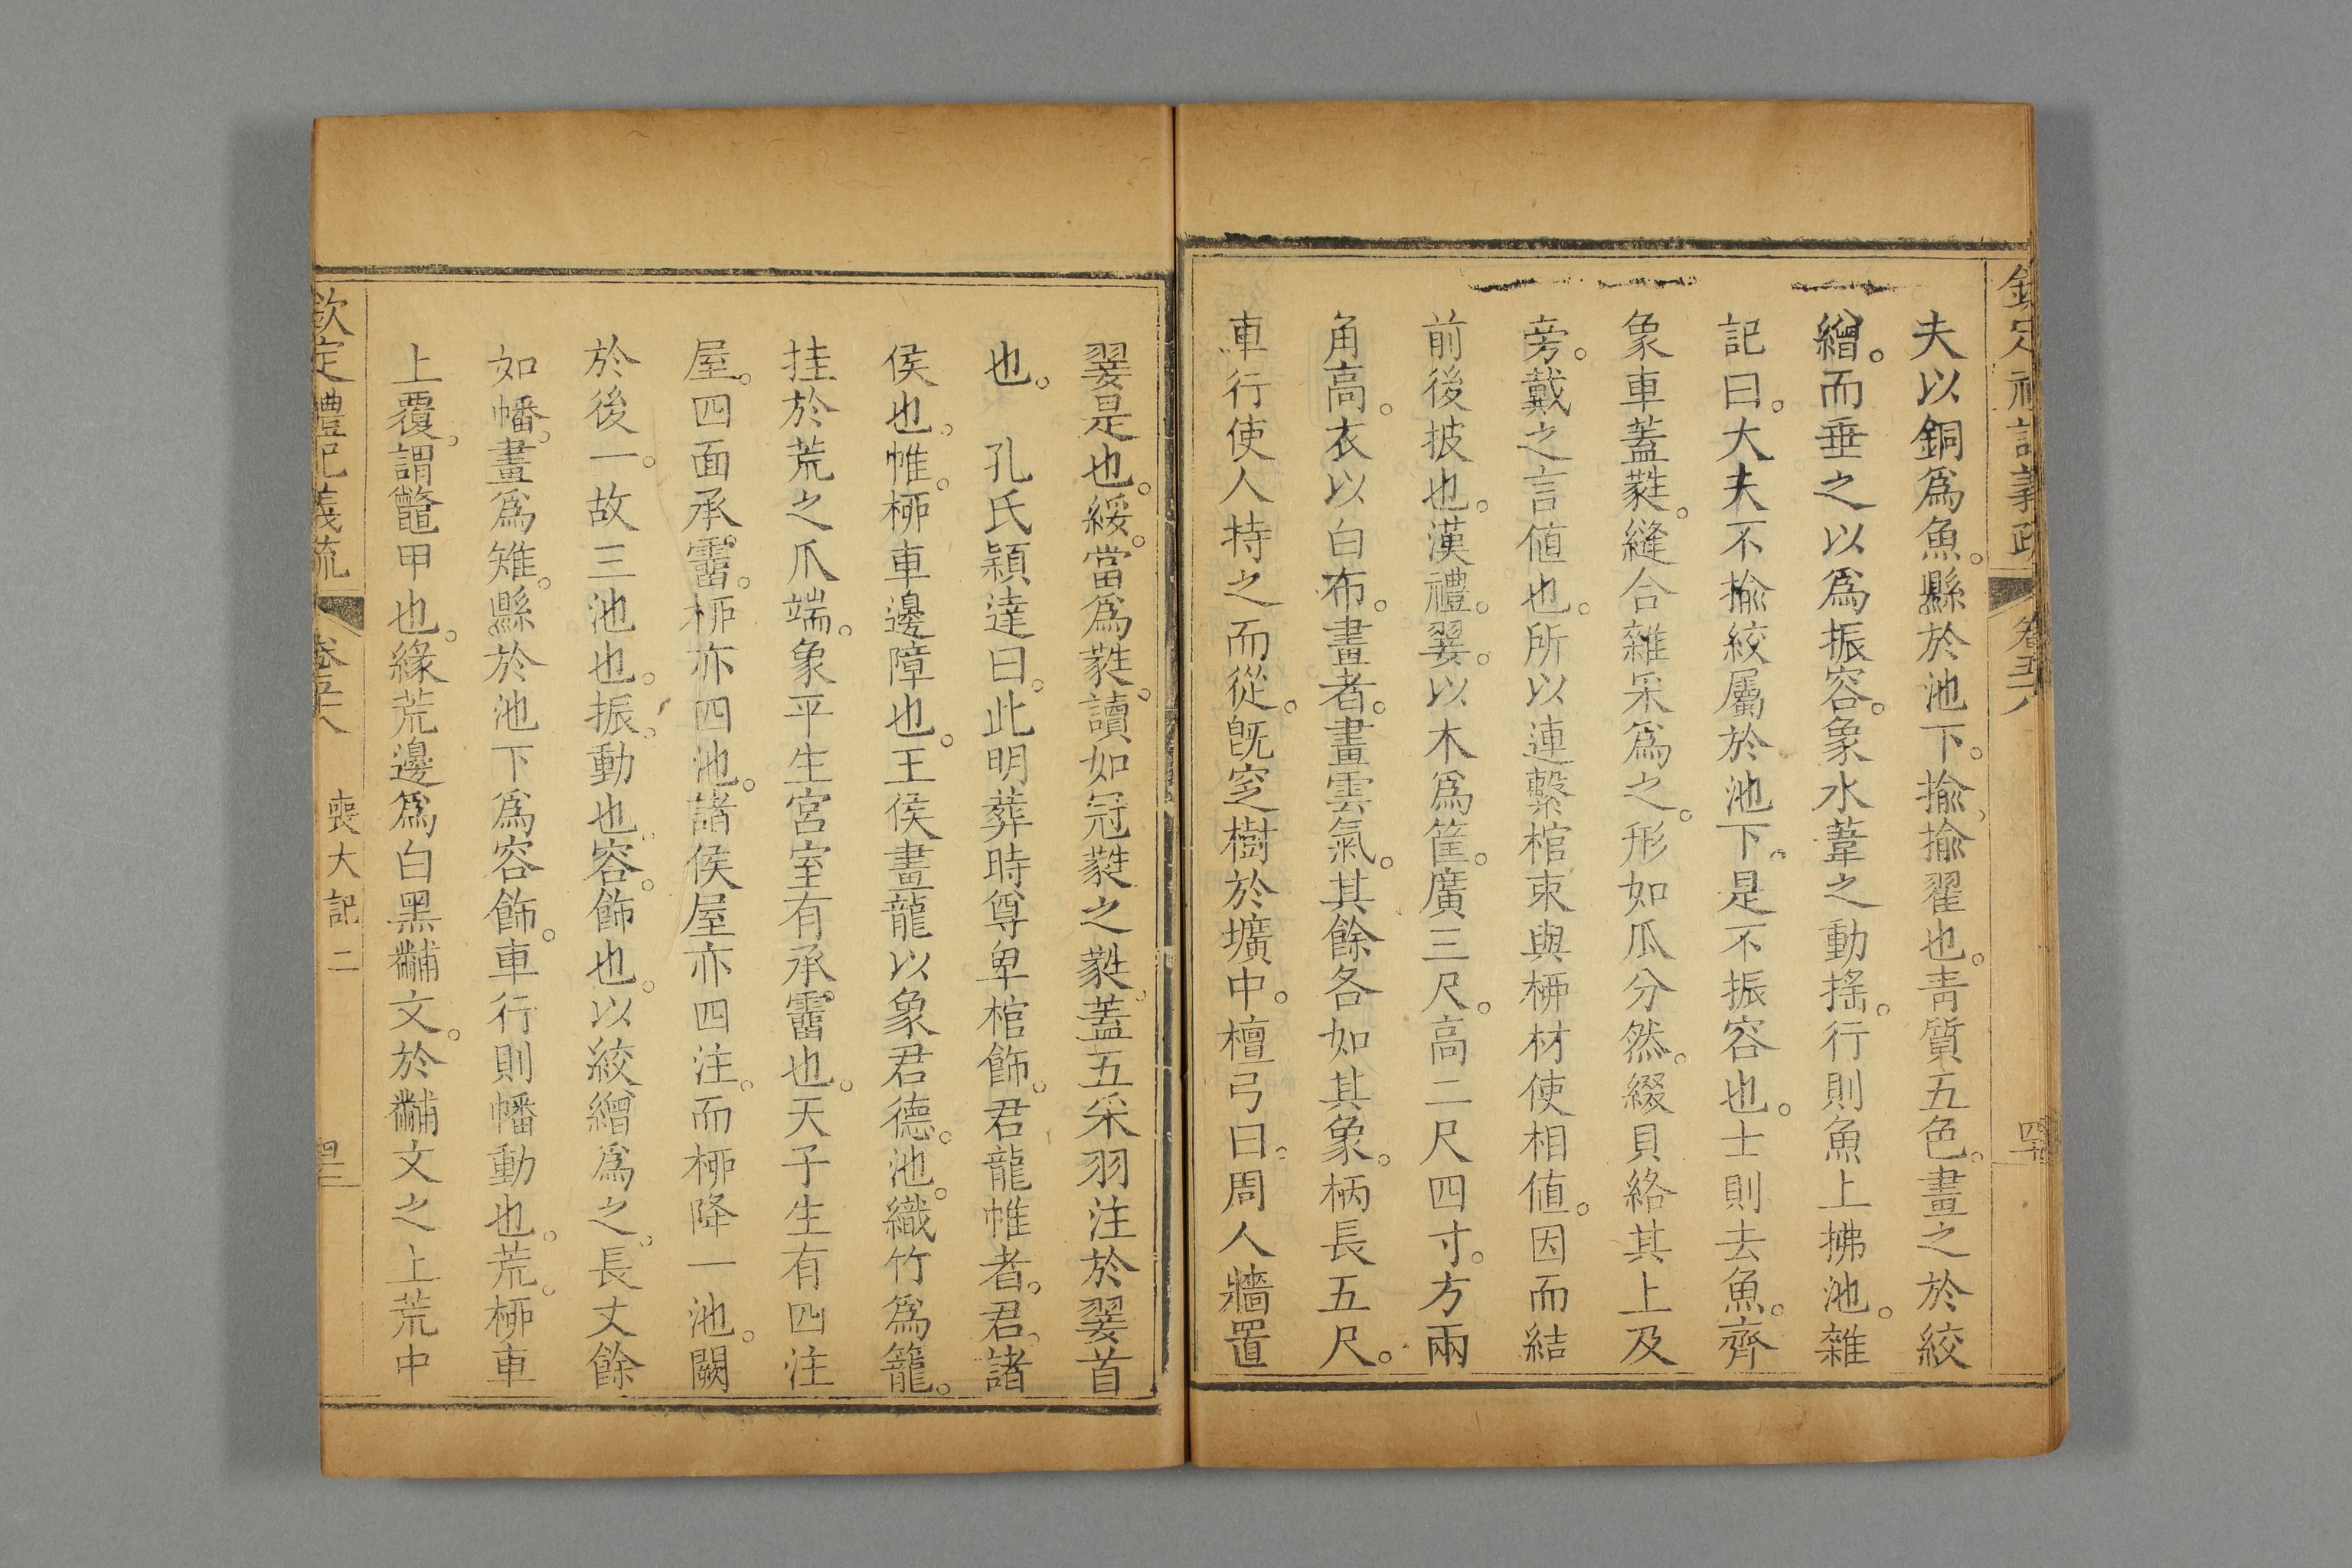 夫以銅爲魚。縣於池下。揄、揄翟也。青質五色。畫之於絞
繒。而垂之以爲振容。象水葦之動搖。行則魚上拂池。雜
記曰。大夫不揄絞屬於池下。是不振容也。士則去魚。齊
象車蓋蕤。縫合雜采爲之。形如瓜分然。綴貝絡其上及
旁。戴之言値也。所以連繫棺束與栁材使相値。因而結
前後披也。漢禮。翣。以木爲筐。廣三尺。高二尺四寸。方兩
角高。衣以白布。畫者。畫雲氣。其餘各如其象。柄長五尺。
車行使人持之而從。旣窆樹於壙中。檀弓曰。周人牆置
翣是也。綏。當爲蕤。讀如冠蕤之蕤、蓋五采羽注於翣首
也。　孔氏穎達曰。此明葬時尊卑棺飾。君龍帷者。君、諸
侯也。帷。栁車邊障也。王侯畫龍以象君德。池。織竹爲籠。
挂於荒之爪端。象平生宮室有承霤也。天子生有四注
屋。四面承霤。栁亦四池。諸侯屋亦四注。而栁降一池。闕
於後一。故三池也。振、動也。容。飾也。以絞繒爲之。長丈餘
如幡。畫爲雉。縣於池下爲容飾。車行則幡動也。荒。栁車
上覆。謂鼈甲也。緣荒邊爲白黑黼文。於黼文之上荒中
欽定禮記義疏　卷五十八　喪大記二